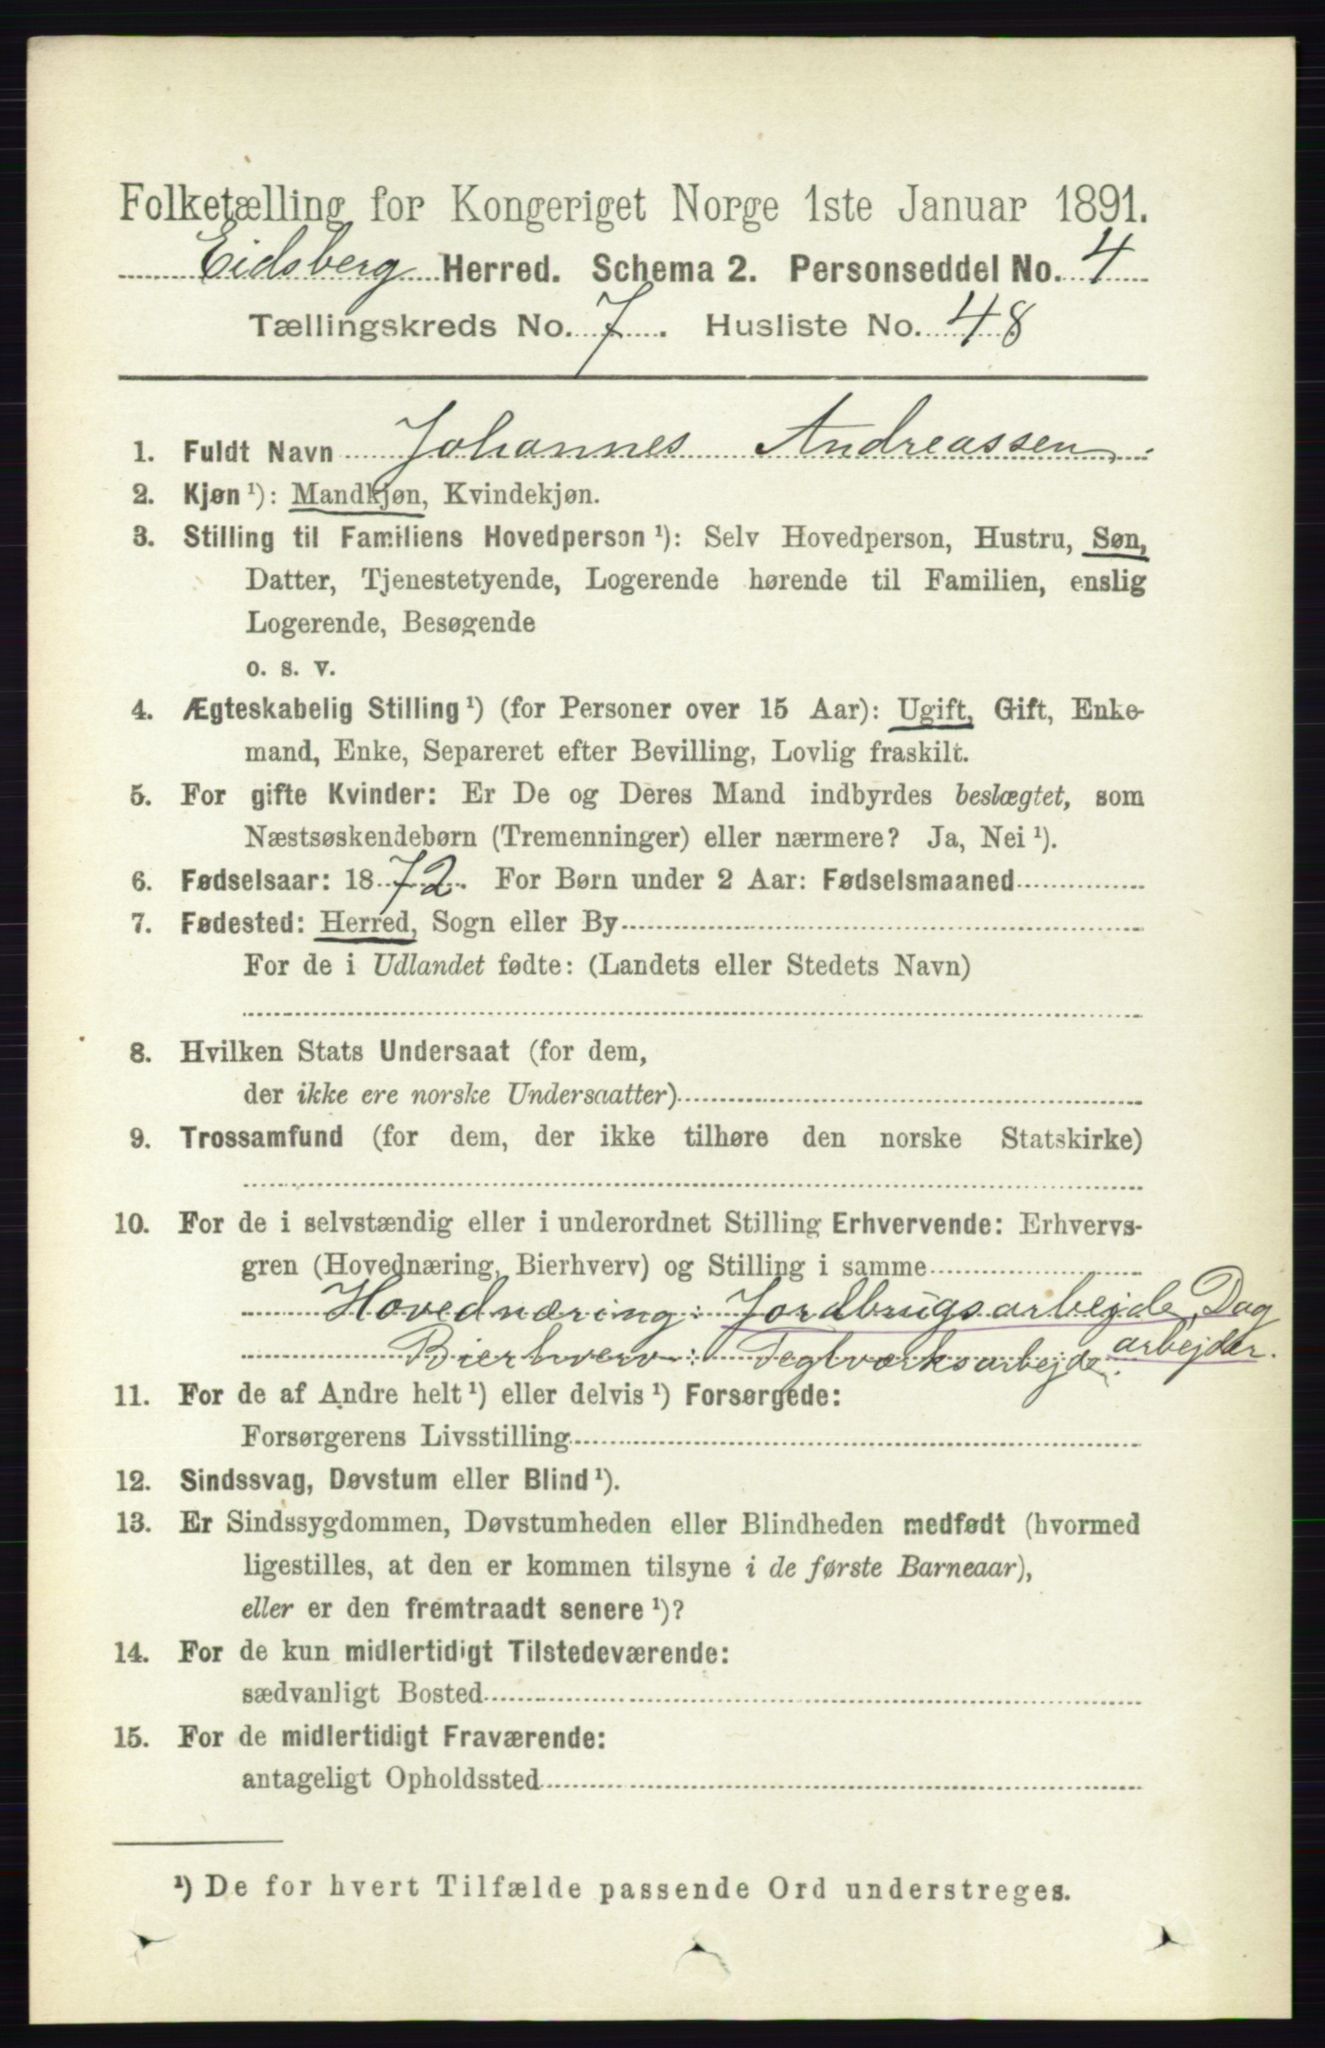 Folketælling for Kongeriget Norge 1ste Januar 1891.
Eidsberg Herred. Schema 2. Personseddel No. 4
Tællingskreds No. 7. Husliste No. 48
1. Fuldt Navn Johannes Andreassen.
2. Kjøn ¹): Mandkjøn, Kvindekjøn.
3. Stilling til Familiens Hovedperson ¹): Selv Hovedperson, Hustru, Søn,
Datter, Tjenestetyende, Logerende hørende til Familien, enslig
Logerende, Besøgende
o. s. v.
4. Ægteskabelig Stilling ¹) (for Personer over 15 Aar): Ugift, Gift, Enke-
mand, Enke, Separeret efter Bevilling, Lovlig fraskilt.
5. For gifte Kvinder: Er De og Deres Mand indbyrdes beslægtet, som
Næstsøskendebørn (Tremenninger) eller nærmere? Ja, Nei ¹).
6. Fødselsaar: 1872. For Børn under 2 Aar: Fødselsmaaned
7. Fødested: Herred, Sogn eller By
For de i Udlandet fødte: (Landets eller Stedets Navn)
8. Hvilken Stats Undersaat (for dem,
der ikke ere norske Undersaatter)
9. Trossamfund (for dem, der ikke tilhøre den norske Statskirke)
10. For de i selvstændig eller i underordnet Stilling Erhvervende: Erhvervs-
gren (Hovednæring, Bierhverv) og Stilling i samme
Hovednæring: Jordbrugsarbejde, Dag
Bierhverv: Teglværksarbejde. arbejder.
11. For de af Andre helt ¹) eller delvis ¹) Forsørgede:
Forsørgerens Livsstilling
12. Sindssvag, Døvstum eller Blind ¹).
13. Er Sindssygdommen, Døvstumheden eller Blindheden medfødt (hvormed
ligestilles, at den er kommen tilsyne i de første Barneaar),
eller er den fremtraadt senere ¹)?
14. For de kun midlertidigt Tilstedeværende:
sædvanligt Bosted
15. For de midlertidigt Fraværende:
antageligt Opholdssted
¹) De for hvert Tilfælde passende Ord understreges.